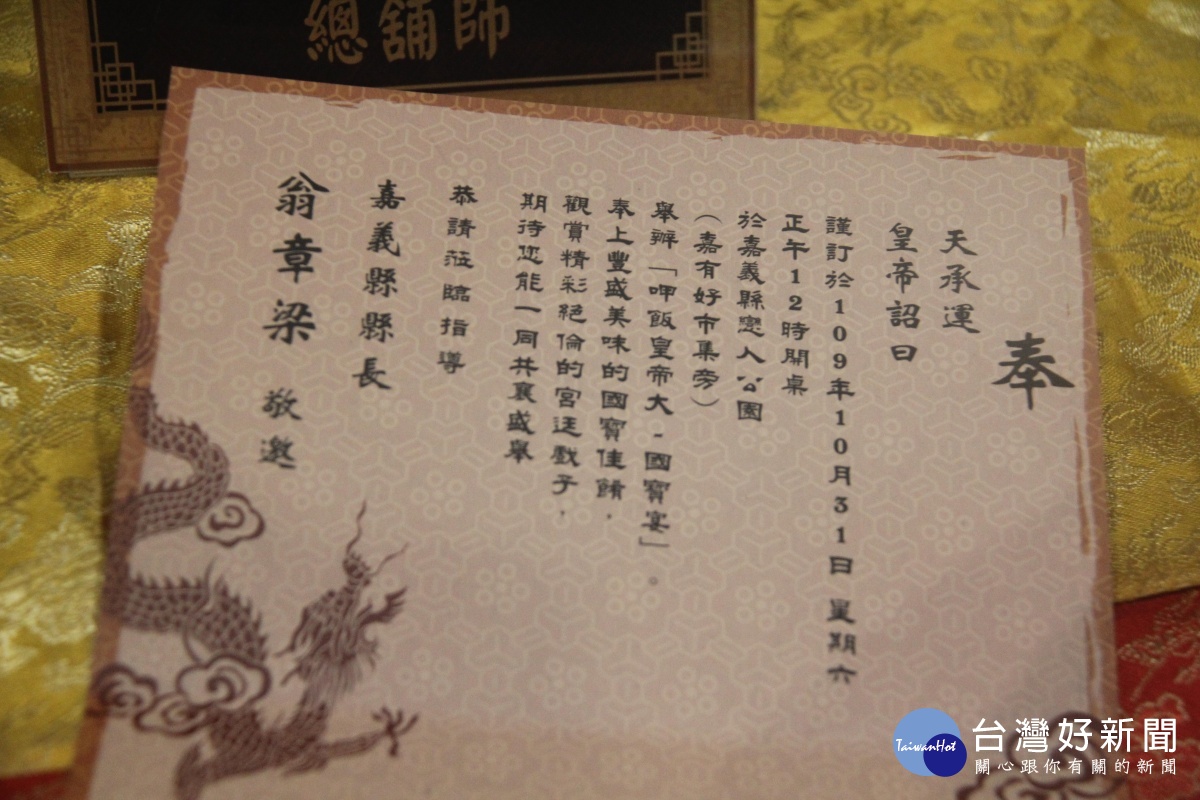 總舖師
奉
天承運
皇帝詔曰
謹訂於109年10月31日 星期六
正午12時開桌
於嘉義縣戀人公園
（嘉有好市集旁）
舉辦「呷飯皇帝大-國寶宴」。
奉上豐盛美味的國寶佳餚，
觀賞精彩絕倫的宮廷戲子，
期待您能一同共襄盛舉
恭請蒞臨指導
嘉義縣縣長
翁章梁 敬邀
TaiwanHot
台灣好新聞
關心跟你有關的新聞